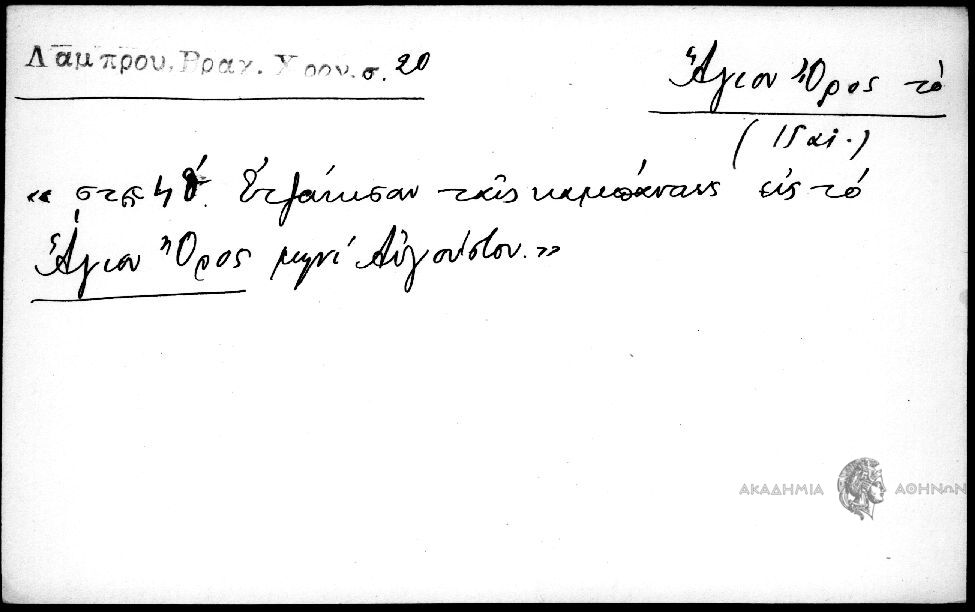 Λαμπρου, Βραχ. Χρον. σ. 20
Ἅγιον Ὄρος τό
(15 αἰ.)
« στες 4 ἐτζάκισαν ταῖς καμπάναις εἰς τό
Ἅγιον Ὄρος μηνί Αὐγούστου. »
ΑΚΑΔΗΜΙΑ ΑΘΗΝΩΝ